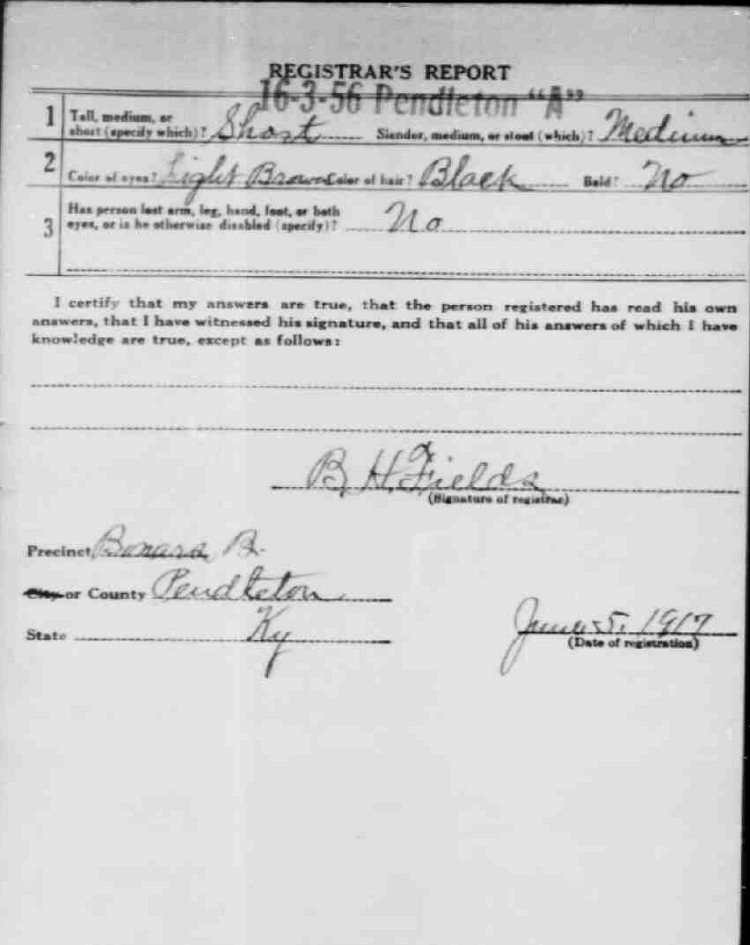 REGISTRAR'S REPORT
16-3-56 Pendleton "A"
1 Tall, medium, or short (specify which)? Short Slender, medium, or stout (which)? Medium
2 Color of eyes? Light Brown Color of hair? Black Bald? No
3 Has person lost arm, leg, hand, foot, or both
eyes, or is he otherwise disabled (specify)? No
I certify that my answers are true, that the person registered has read his own
answers, that I have witnessed his signature, and that all of his answers of which I have
knowledge are true, except as follows:
B. H. Fields
(Signature of registrar)
Precinct B.
City or County Pendleton
State Ky
June 5, 1917
(Date of registration)